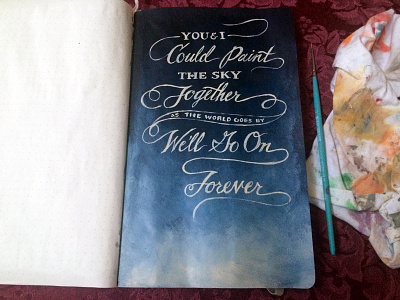 YOU & I
Could Paint
THE SKY
Together
AS THE WORLD GOES BY
We'll Go On
Forever